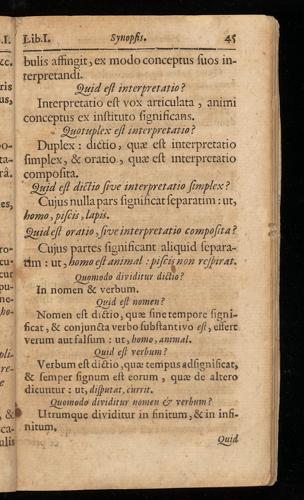 Lib.I. Synopſis. 45
bulis affingit, ex modo conceptus ſuos in-
terpretandi.
Quid eſt interpretatio?
Interpretatio eſt vox articulata, animi
conceptus ex inſtituto ſignificans.
Quotuplex eſt interpretatio?
Duplex : dictio, quæ eſt interpretatio
ſimplex, & oratio, quæ eſt interpretatio
compoſita.
Quid eſt dictio ſive interpretatio ſimplex?
Cujus nulla pars ſignificat ſeparatim : ut,
homo, piſcis, lapis.
Quid eſt oratio, ſive interpretatio compoſita?
Cujus partes ſignificant aliquid ſepara-
tim : ut, homo eſt animal : piſcis non reſpirat.
Quomodo dividitur dictio?
In nomen & verbum.
Quid eſt nomen?
Nomen eſt dictio, quæ ſine tempore ſigni-
ficat, & conjuncta verbo ſubſtantivo eſt, effert
verum aut falſum : ut, homo, animal.
Quid eſt verbum?
Verbum eſt dictio, quæ tempus adſignificat,
& ſemper ſignum eſt eorum, quæ de altero
dicuntur : ut, diſputat, currit.
Quomodo dividitur nomen & verbum?
Utrumque dividitur in finitum, & in infi-
nitum,
Quid